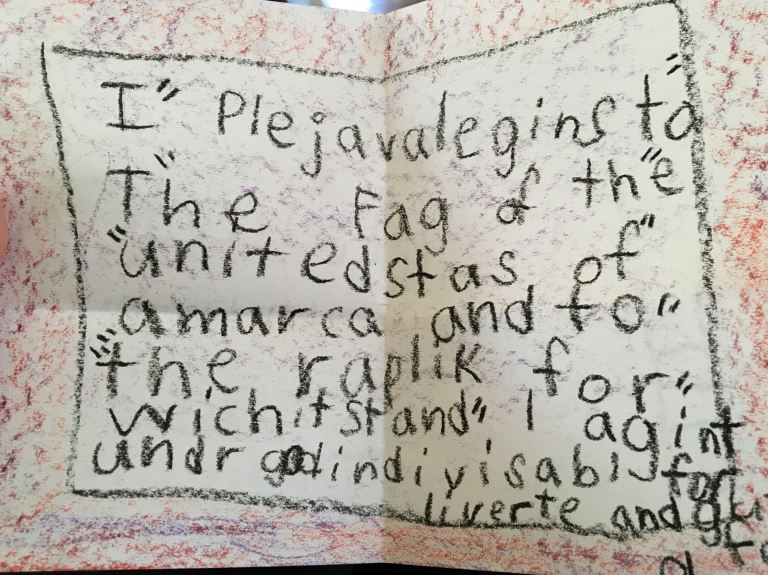 I" Plejavalegins "to
"The Fag of th"e
"unitedstas of"
amarca and to"
"the raplik for"
wichitstand" I agint
undr god indivisabl for
liverte and